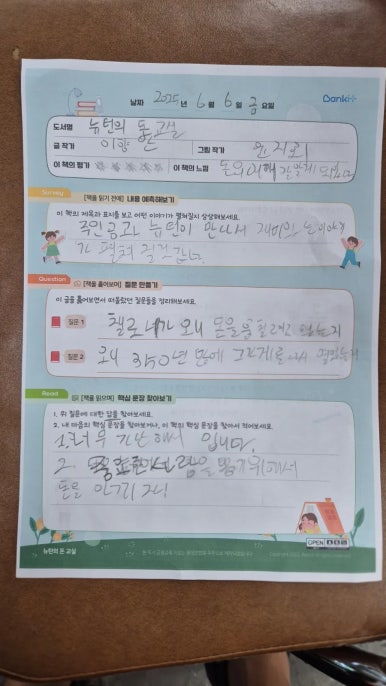 날짜 2025년 6월 6일 금요일
Banki
도서명 뉴턴의 돈 교실
글 작가 이향안 그림 작가 윤지회
이 책의 평가 ★★★★★ 이 책의 느낌 돈의
Survey [책을 읽기 전에] 내용 예측해보기
이 책의 제목과 표지를 보고 어떤 이야기가 펼쳐질지 상상해보세요.
주인공과 뉴턴이 만나서 재미있는 이야기
가 펼쳐 질것 같다.
Question [책을 훑어보며] 질문 만들기
이 글을 훑어보면서 떠올랐던 질문들을 정리해보세요.
질문 1 왜 돈을
질문 2 왜 350년 만에
Read [책을 읽으며] 핵심 문장 찾아보기
1. 위 질문에 대한 답을 찾아보세요.
2. 내 마음의 핵심 문장을 찾아보거나, 이 책의 핵심 문장을 찾아서 적어보세요.
1. 너무 가난해서 입니다.
2. 위해서
돈을
OPEN
뉴턴의 돈 교실